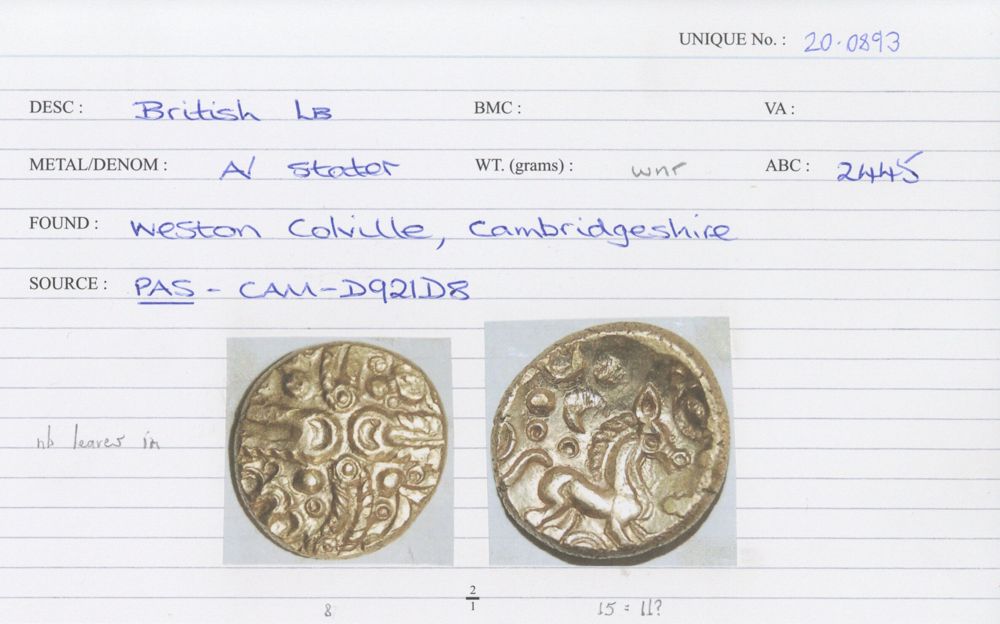 UNIQUE No. : 20.0893
DESC : British LB BMC : VA :
METAL/DENOM : A/ stater WT. (grams) : wnr ABC : 2445
FOUND : Weston Colville, Cambridgeshire
SOURCE : PAS - CAM-D921D8
nb leaves in
2
1
8 15 = 11?